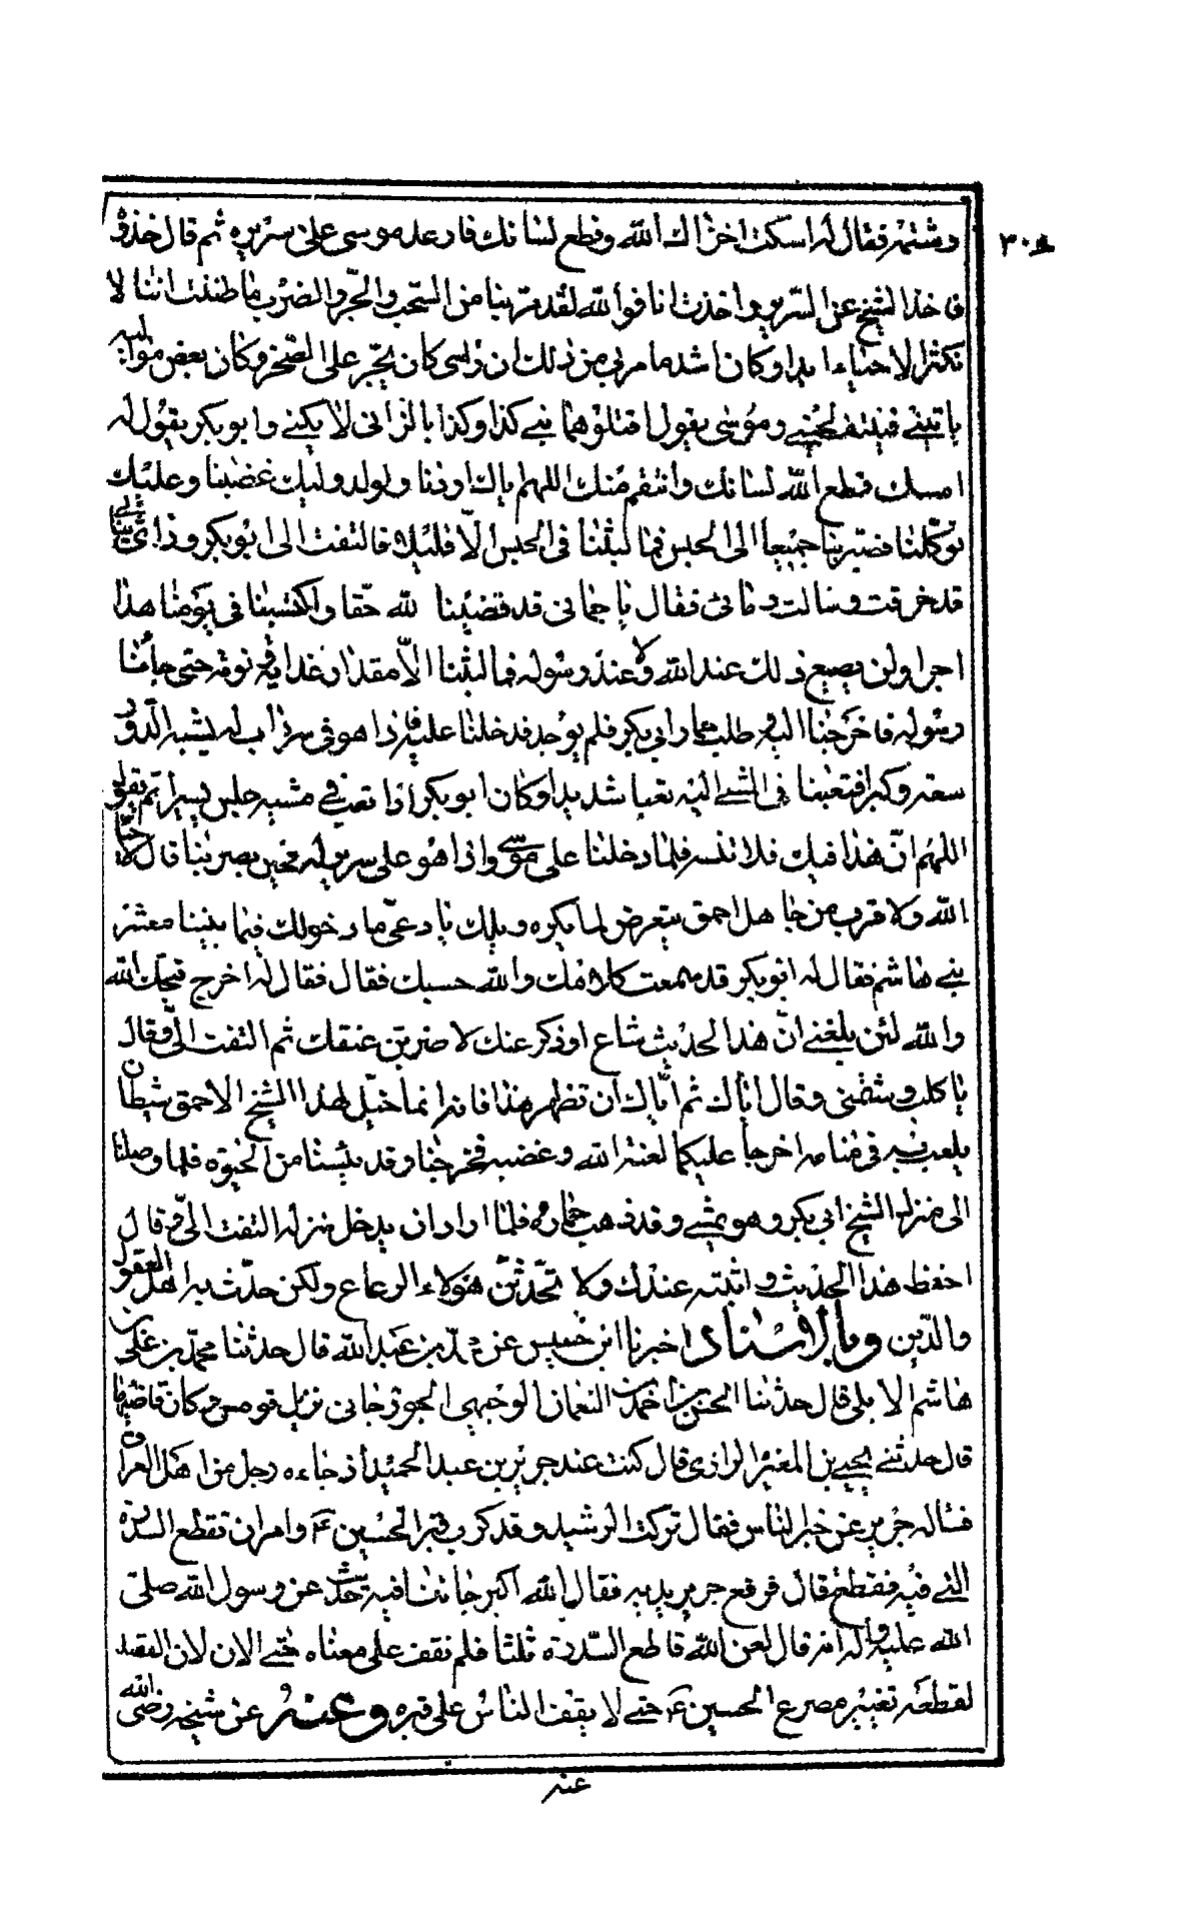 ٣٠٤
وشتمه فقال له اسكت اخزاك الله وقطع لسانك فارعد موسى على سريره ثم قال خذوه
فاخذ الشيخ عن السرير واخذت انا فوالله لقد مر بنا من السحب والجر والضرب ما ظننت اننا لا
نكثر الاحياء ابدا وكان اشد ما مر بي من ذلك ان راسى كان يجر على الصخر وكان بعض مواليه
ياتيني فينتف لحيتي وموسى يقول اقتلوهما بني كذا وكذا بالزانى لا يكني وابو بكر يقول له
امسك قطع الله لسانك وانتقم منك اللهم اياك اردنا ولولد وليك غضبنا وعليك
توكلنا فصير بنا جميعا الى الحبس فما لبثنا فى الحبس الا قليلا فالتفت الى ابو بكر وراى ثيابي
قد خرقت وسالت دمائى فقال يا حمانى قد قضينا لله حقا واكتسبنا فى يومنا هذا
اجرا ولن يضيع ذلك عند الله ولا عند رسوله فما لبثنا الا مقدار غدائه ونومه حتى جائنا
رسوله فاخرجنا اليه وطلب حمار ابي بكر فلم يوجد فدخلنا عليه فاذا هو فى سرداب له يشبه الدور
سعة وكبرا فتعبنا فى المشي اليه تعبا شديدا وكان ابو بكر اذا تعب في مشيه جلس يسيرا ثم يقول
اللهم ان هذا فيك فلا تنسه فلما دخلنا على موسى واذا هو على سرير له فحين بصر بنا قال لا حيا
الله ولا قرب من جاهل احمق يتعرض لما يكره ويلك يا دعى ما دخولك فيما بيننا معشر
بني هاشم فقال له ابو بكر قد سمعت كلامك والله حسبك فقال فقال له اخرج قبحك الله
والله لئن بلغني ان هذا الحديث شاع او ذكر عنك لاضربن عنقك ثم التفت الىّ وقال
يا كلب وشتمنى وقال اياك ثم اياك ان تظهر هذا فانه انما خيل لهذا الشيخ الاحمق شيطان
يلعب به فى منامه اخرجا عليكما لعنة الله وغضبه فخرجنا وقد يئسنا من الحيوة فلما وصلنا
الى منزل الشيخ ابى بكر وهو يمشي وقد ذهب حماره فلما اراد ان يدخل منزله التفت الىّ وقال
احفظ هذا الحديث واثبته عندك ولا تحدثن هؤلاء الرعاع ولكن حدث به اهل العقول
والدين وبالاسناد اخبرنا ابن خنيس عن محمد بن عبد الله قال حدثنا محمد بن على بن
هاشم الابلى قال حدثنا الحسن بن احمد بن النعمان الوجيهى الجوزجانى نزيل قومس وكان قاضيها
قال حدثني يحيى بن المغيرة الرازى قال كنت عند جرير بن عبد الحميد اذ جاءه رجل من اهل العراق
فسأله جرير عن خبر الناس فقال تركت الرشيد وقد كرب قبر الحسين ع وامر ان تقطع السدرة
التي فيه فقطعت قال فرفع جرير يديه فقال الله اكبر جائنا فيه حديث عن رسول الله صلى
الله عليه وآله انه قال لعن الله قاطع السدرة ثلثا فلم نقف على معناه حتى الان لان القصد
لقطعه تغيير مصرع الحسين ع حتى لا يقف الناس على قبره وعنه عن شيخه رضى الله
عنه